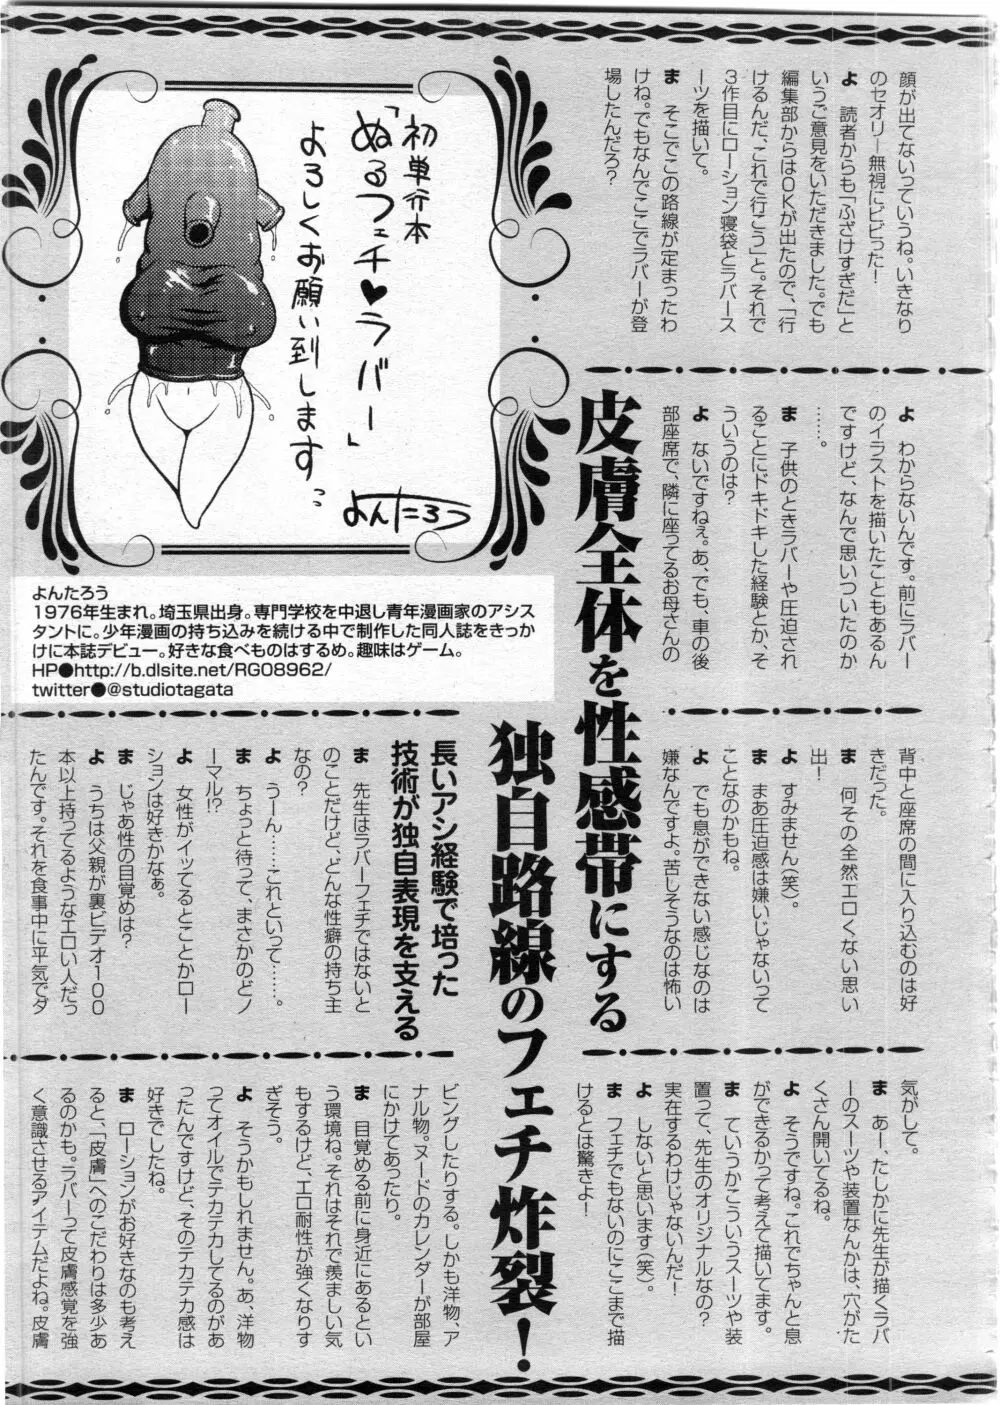 顔が出てないっていうね。いきなり
のセオリー無視にビビった！
よ　読者からも「ふざけすぎだ」と
いうご意見をいただきました。でも
編集部からはOKが出たので、「行
けるんだ、これで行こう」と。それで
3作目にローション寝袋とラバース
ーツを描いて。
ま　そこでこの路線が定まったわ
けね。でもなんでここでラバーが登
場したんだろ？
初単行本
「ぬるフェチ♥ラバー」
よろしくお願い到します。
よんたろう
よんたろう
1976年生まれ。埼玉県出身。専門学校を中退し青年漫画家のアシス
タントに。少年漫画の持ち込みを続ける中で制作した同人誌をきっか
けに本誌デビュー。好きな食べものはするめ。趣味はゲーム。
HP●http://b.dlsite.net/RG08962/
twitter●@studiotagata
よ　わからないんです。前にラバー
のイラストを描いたこともあるん
ですけど、なんで思いついたのか
……。
ま　子供のときラバーや圧迫され
ることにドキドキした経験とか、そ
ういうのは？
よ　ないですねぇ。あ、でも、車の後
部座席で、隣に座ってるお母さんの
皮膚全体を性感帯にする
独自路線のフェチ炸裂！
背中と座席の間に入り込むのは好
きだった。
ま　何その全然エロくない思い
出！
よ　すみません（笑）。
ま　まあ圧迫感は嫌いじゃないって
ことなのかもね。
よ　でも息ができない感じなのは
嫌なんですよ。苦しそうなのは怖い
気がして。
ま　あー、たしかに先生が描くラバ
ーのスーツや装置なんかは、穴がた
くさん開いてるね。
よ　そうですね。これでちゃんと息
ができるかって考えて描いてます。
ま　ていうかこういうスーツや装
置って、先生のオリジナルなの？
実在するわけじゃないんだ！
よ　しないと思います（笑）。
ま　フェチでもないのにここまで描
けるとは驚きよ！
長いアシ経験で培った
技術が独自表現を支える
ま　先生はラバーフェチではないと
のことだけど、どんな性癖の持ち主
なの？
よ　うーん……これといって……。
ま　ちょっと待って、まさかのどノ
ーマル!?
よ　女性がイッてるとことかロー
ションは好きかなぁ。
ま　じゃあ性の目覚めは？
よ　うちは父親が裏ビデオ100
本以上持ってるようなエロい人だっ
たんです。それを食事中に平気でダ
ビングしたりする。しかも洋物、ア
ナル物。ヌードのカレンダーが部屋
にかけてあったり。
ま　目覚める前に身近にあるとい
う環境ね。それはそれで羨ましい気
もするけど、エロ耐性が強くなりす
ぎそう。
よ　そうかもしれません。あ、洋物
ってオイルでテカテカしてるのがあ
ったんですけど、そのテカテカ感は
好きでしたね。
ま　ローションがお好きなのも考え
ると、「皮膚」へのこだわりは多少あ
るのかも。ラバーって皮膚感覚を強
く意識させるアイテムだよね。皮膚